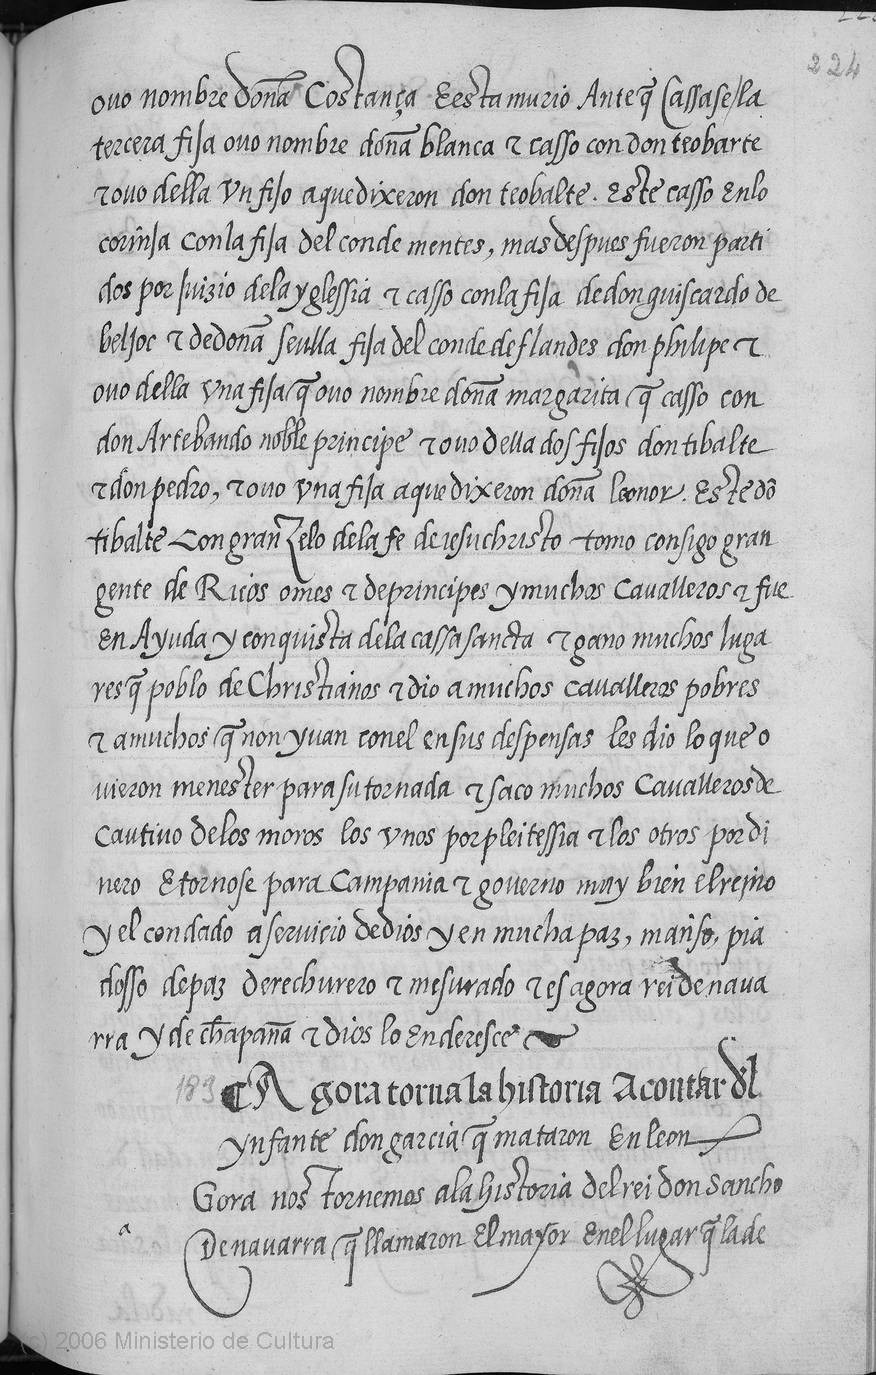 224
ouo nombre doña Costança E esta murio Ante q̃ Cassase / la
tercera fija ouo nombre doña blanca τ casso con don teobarte
τ ouo della vn fijo aque dixeron don teobalte. Este casso En lo
corinja con la fija del conde mentes, mas despues fueron parti
dos por juizio dela yglessia τ casso con la fija de don guiscardo de
beljoc τ de doña seuilla fija del conde de flandes don philipe τ
ouo della vna fija q̃ ouo nombre doña margarita q̃ casso con
don Artebando noble principe τ ouo della dos fijos don tibalte
τ don pedro, τ ouo vna fija aque dixeron doña leonor. Este dõ
tibalte Con gran zelo dela fe de iesuchristo tomo consigo gran
gente de Ricos omes τ de principes y muchos Caualleros τ fue
En Ayuda y conquista dela cassa sancta τ gano muchos luga
res q̃ poblo de Christianos τ dio a muchos caualleros pobres
τ a muchos q̃ non yuan con el en sus despensas les dio lo que o
uieron menester para su tornada τ saco muchos Caualleros de
Cautiuo delos moros los vnos por pleitessia τ los otros por di
nero E tornose para Campania τ gouerno muy bien el rejno
y el condado a seruicio de dios y en mucha paz, manso, pia
dosso de paz derechurero τ mesurado τ es agora rei de naua
rra y de chapaña τ dios lo Enderesce
189 Agora torna la historia A contar dl
ynfante don garcia q̃ mataron En leon
Gora nos tornemos ala historia del rei don sancho
a De nauarra q̃ llamaron El mayor En el lugar q̃ la de
(c) 2006 Ministerio de Cultura